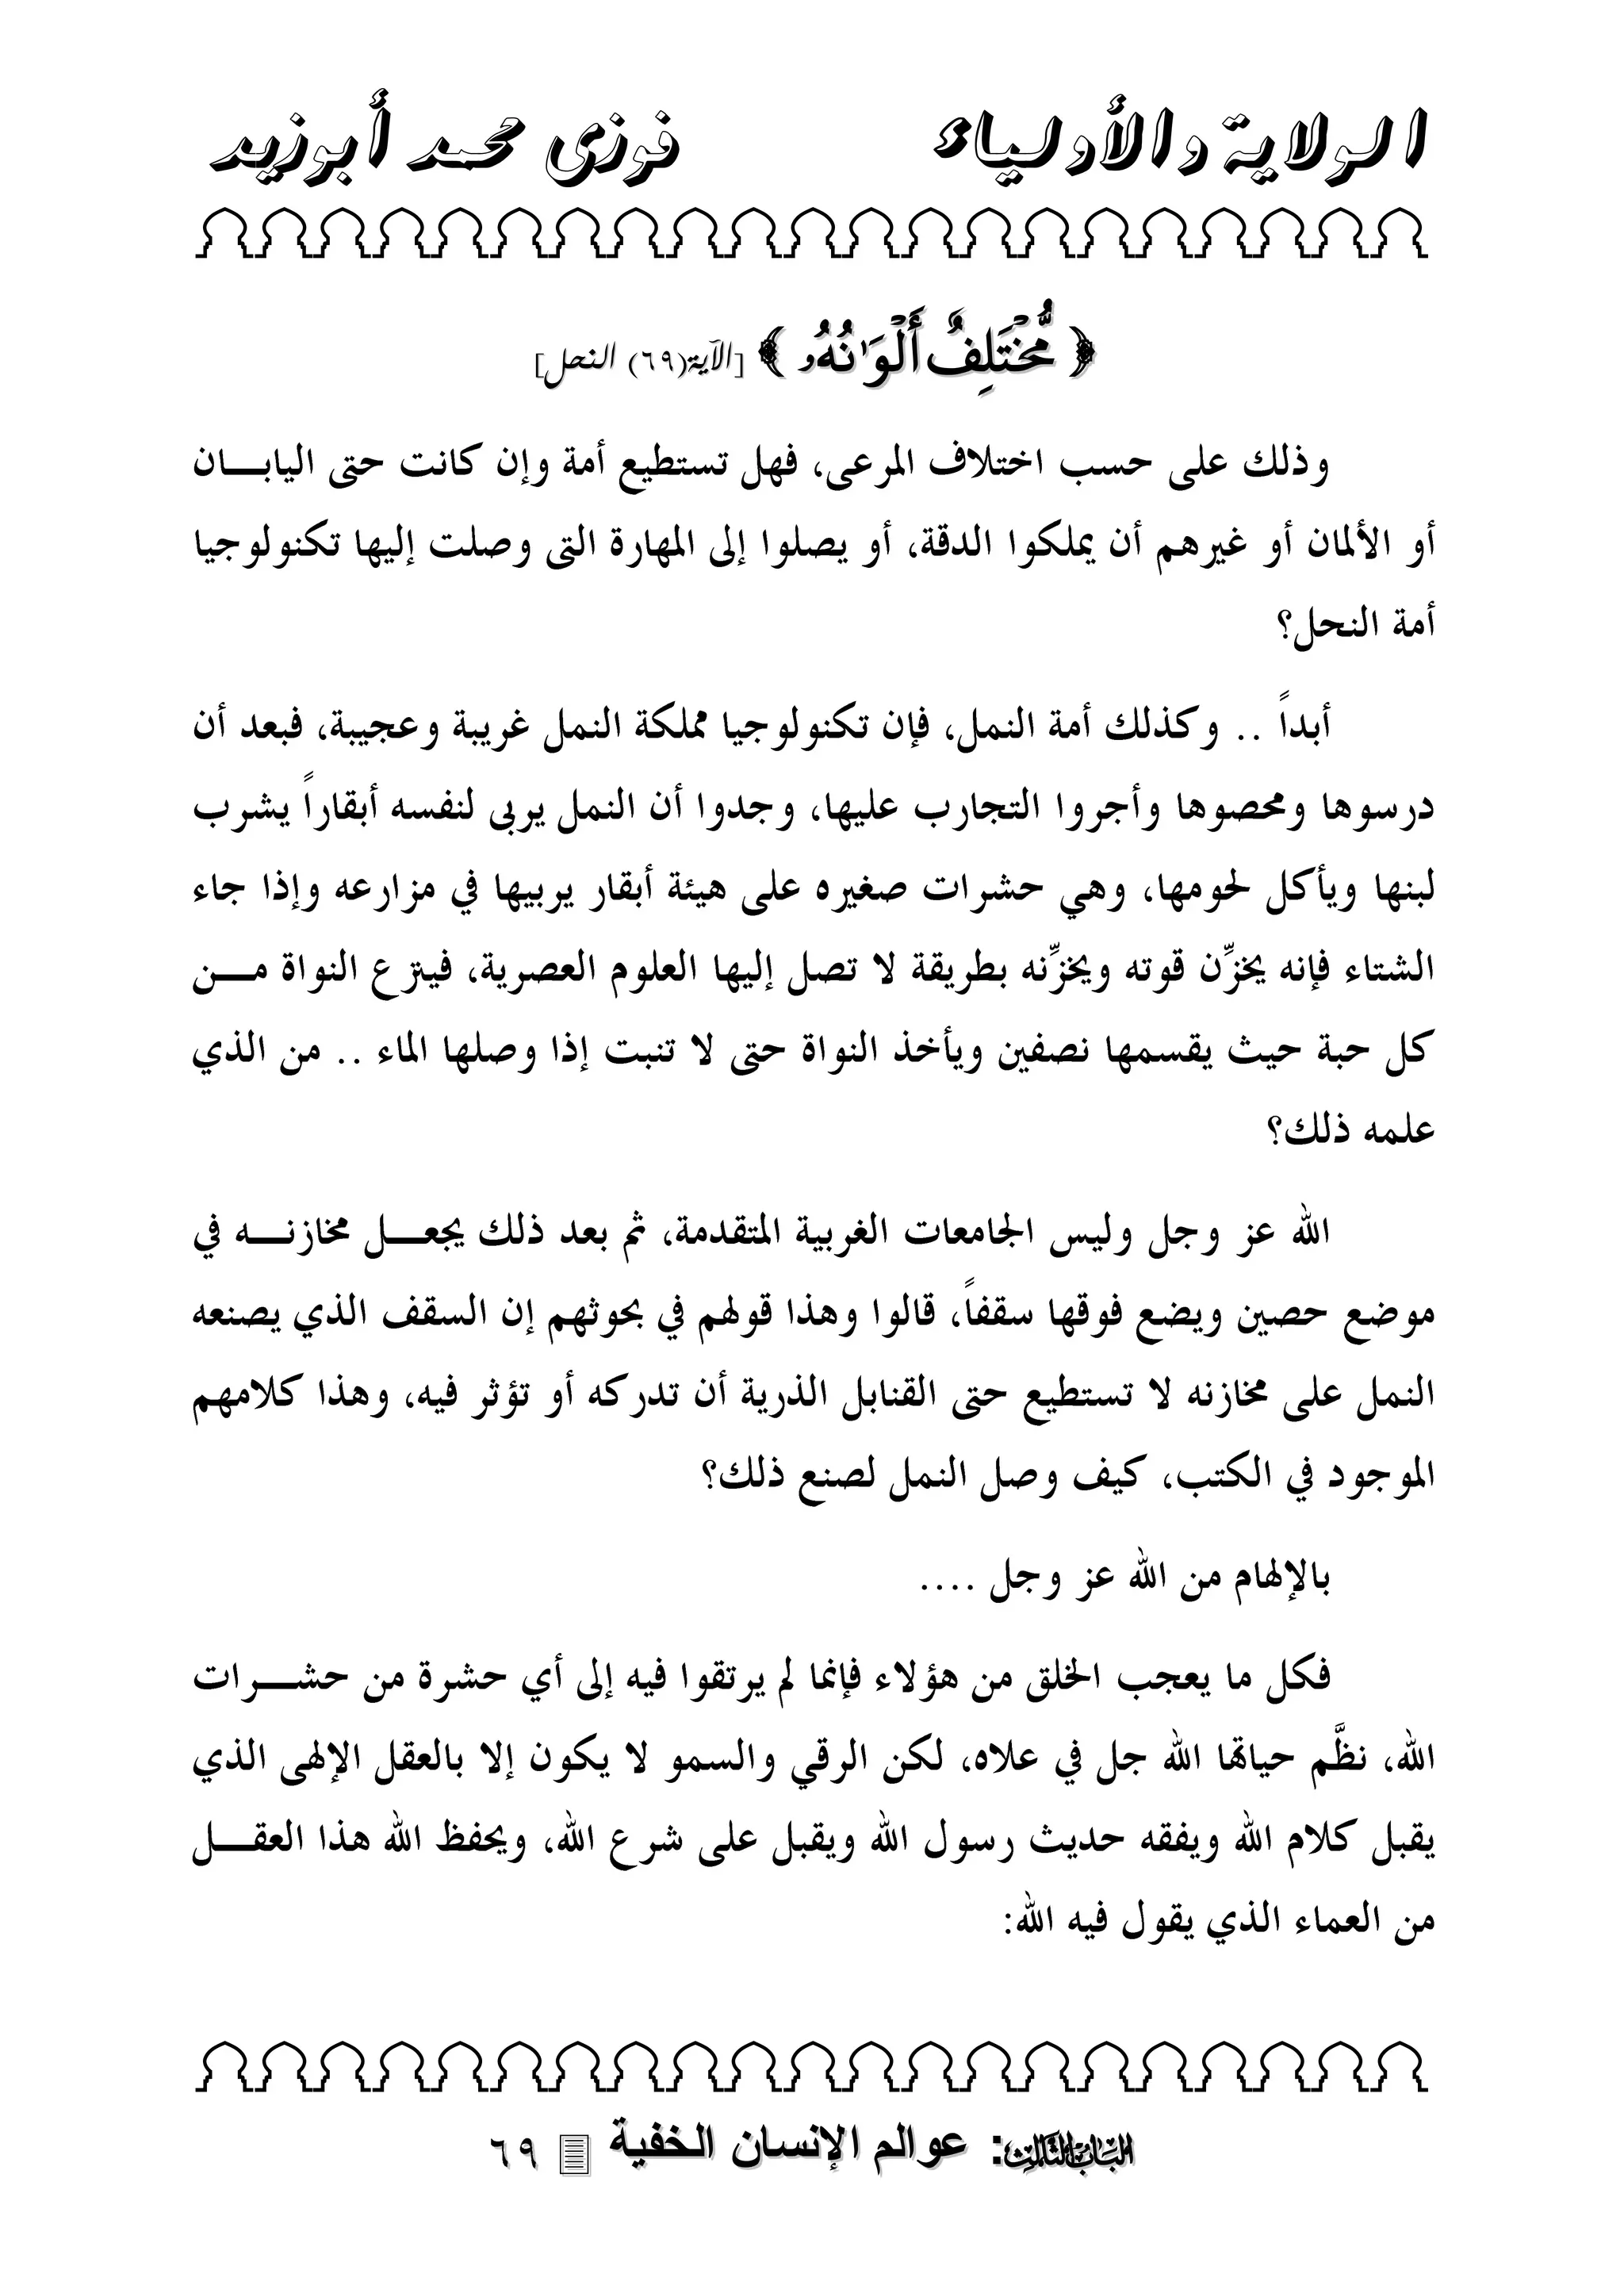 الولاية والأولياء فوزى محمد أبوزيد
﴿ مُّخْتَلِفٌ أَلْوَٰنُهُۥ ﴾ [الآية(٦٩) النحل]
وذلك على حسب اختلاف المرعى، فهل تستطيع أمة وإن كانت حتى اليابـــان
أو الألمان أو غيرهم أن يملكوا الدقة، أو يصلوا إلى المهارة التى وصلت إليها تكنولوجيا
أمة النحل؟
أبداً .. وكذلك أمة النمل، فإن تكنولوجيا مملكة النمل غريبة وعجيبة، فبعد أن
درسوها ومحصوها وأجروا التجارب عليها، وجدوا أن النمل يربى لنفسه أبقاراً يشرب
لبنها ويأكل لحومها، وهي حشرات صغيره على هيئة أبقار يربيها في مزارعه وإذا جاء
الشتاء فإنه يخزِّن قوته ويخزِّنه بطريقة لا تصل إليها العلوم العصرية، فينزع النواة مـــن
كل حبة حيث يقسمها نصفين ويأخذ النواة حتى لا تنبت إذا وصلها الماء .. من الذي
علمه ذلك؟
الله عز وجل وليس الجامعات الغربية المتقدمة، ثم بعد ذلك يجعـــل مخازنـــه في
موضع حصين ويضع فوقها سقفاً، قالوا وهذا قولهم في بحوثهم إن السقف الذي يصنعه
النمل على مخازنه لا تستطيع حتى القنابل الذرية أن تدركه أو تؤثر فيه، وهذا كلامهم
الموجود في الكتب، كيف وصل النمل لصنع ذلك؟
بالإلهام من الله عز وجل ....
فكل ما يعجب الخلق من هؤلاء فإنما لم يرتقوا فيه إلى أي حشرة من حشـــرات
الله، نظَّم حياتها الله جل في علاه، لكن الرقي والسمو لا يكون إلا بالعقل الإلهى الذي
يقبل كلام الله ويفقه حديث رسول الله ويقبل على شرع الله، ويحفظ الله هذا العقـــل
من العماء الذي يقول فيه الله:
الباب الثالث: عوالم الإنسان الخفية ٦٩